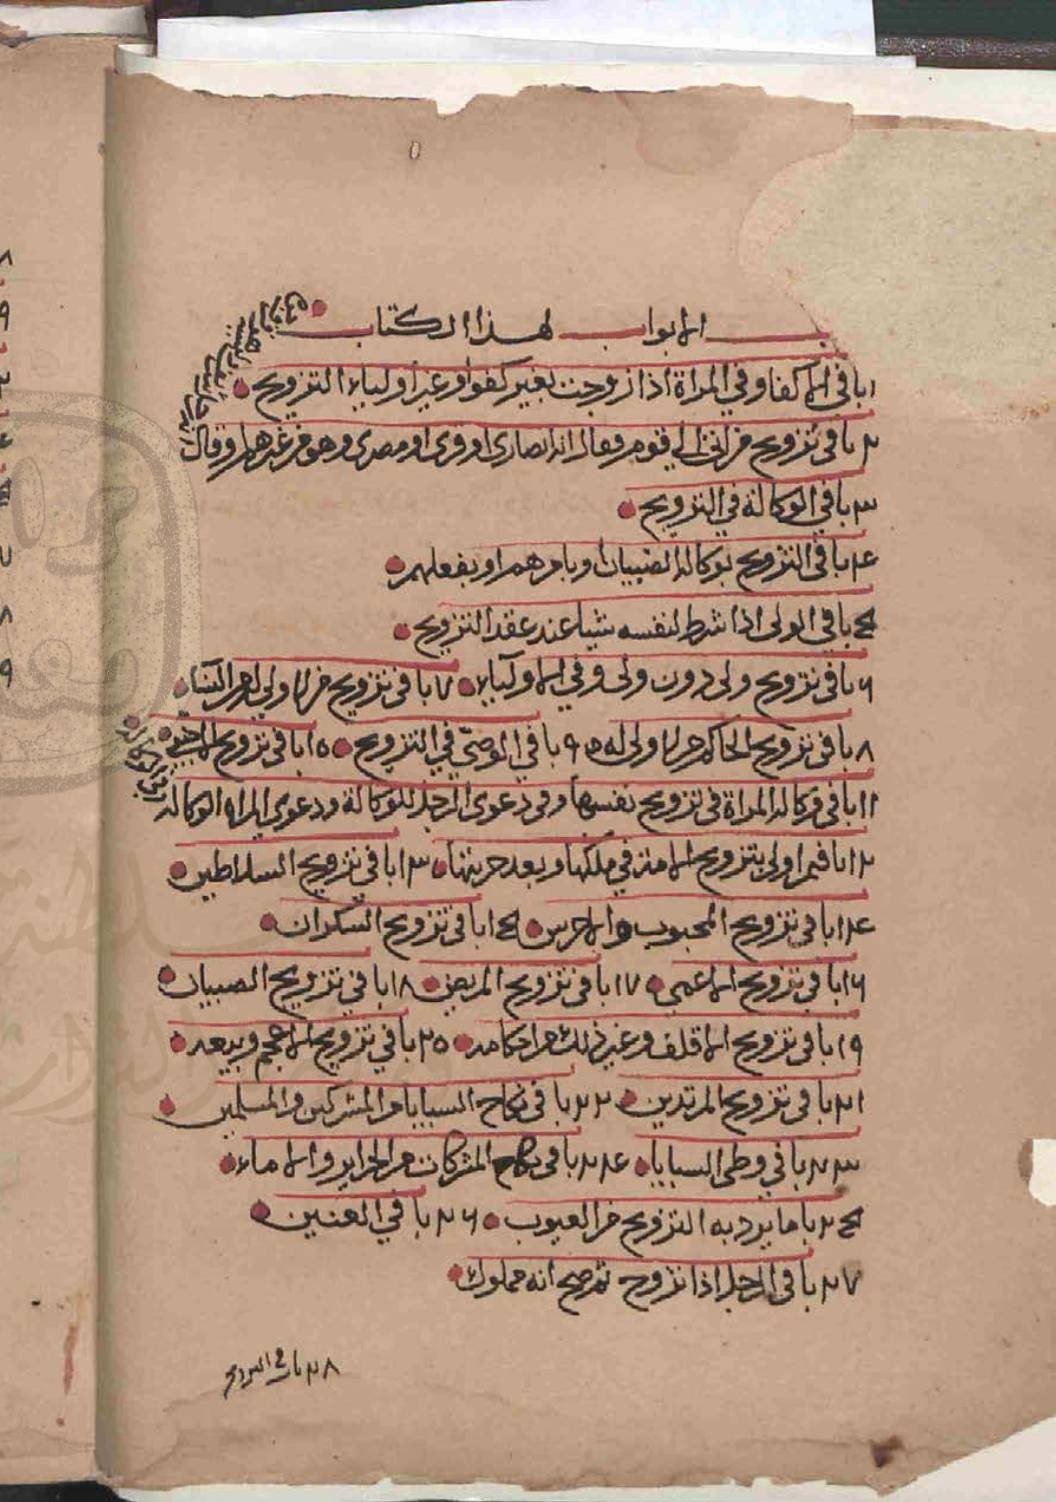 الابواب لهذا الكتاب
١ باب في الاكفا وفي المراة اذا زوجت بغير كفوا وغير اولياء التزويج
٢ باب في تزويج من اتى الى قوم وقال انه انصاري او قرى او مصري وهو من غيرهم او قال
٣ باب في الوكالة في التزويج
٤ باب في التزويج بوكالة الصبيان او بامرهم او بفعلهم
٥ باب في الولى اذا شرط لنفسه شيا عند عقد التزويج
٦ باب في تزويج ولى دون ولى وفي الاولياء ٧ باب في تزويج من لا ولي له من النساء
٨ باب في تزويج الحاكم من لا ولى له ٩ باب في الوصي في التزويج ١٥ باب في تزويج الاجنبي
١١ باب في وكالة المراة في تزويج نفسها وفي دعوى الرجل للوكالة ودعوى المراه الوكالة
١٢ باب فيمن اولى بتزويج الامة في ملكها وبعد حريتها ١٣ باب في تزويج السلاطين
١٤ باب في تزويج المجبوب والاخرس ١٥ باب في تزويج السكران
١٦ باب في تزويج الاعمى ١٧ باب في تزويج المريض ١٨ باب في تزويج الصبيان
١٩ باب في تزويج الاقلف وغير ذلك من احكامه ٢٥ باب في تزويج الاعجم وبيعه
٢١ باب في تزويج المرتدين ٢٢ باب في نكاح السبايا من المشركين والمسلمين
٢٣ باب في وطى السبايا ٢٤ باب في نكاح المشركات من الحراير والاماء
٢٥ باب ما يرد به التزويج من العيوب ٢٦ باب في العنين
٢٧ باب في الرجل اذا تزوج ثم صح انه مملوك
٢٨ باب في التزويج